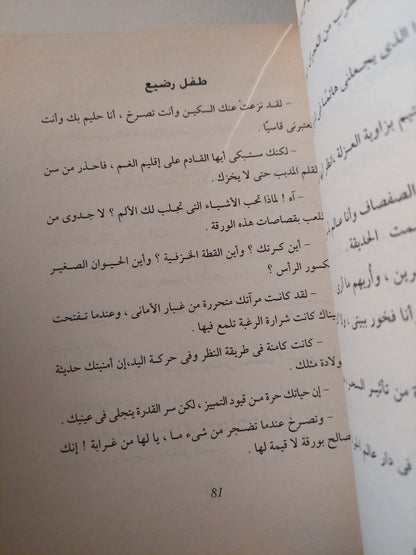 طفل رضيع
- لقد نزعت عنك السكين وأنت تصرخ ، أنا حليم بك وأنت
تعتبرنى قاسيًا .
- لكنك ستبكى أيها القادم على إقليم الغم ، فاحذر من سن
القلم المدبب حتى لا يخزك .
- آه ! لماذا تحب الأشياء التى تجلب لك الألم ؟ لا جدوى من
اللعب بقصاصات هذه الورقة .
- أين كرتك ؟ وأين القطة الخزفية ؟ وأين الحيوان الصغير
مكسور الرأس ؟
- لقد كانت مرآتك متحررة من غبار الأمانى ، وعندما تفتحت
عيناك كانت شرارة الرغبة تلمع فيها .
- كانت كامنة فى طريقة النظر وفى حركة اليد، إن أمنيتك حديثة
الولادة مثلك .
- إن حياتك حرة من قيود التمييز ، لكن سر القدرة يتجلى فى عينيك .
- وتصرخ عندما تضجر من شىء مـا ، يا لها من غرابة ! إنك
تصالح بورقة لا قيمة لها .
81
الذى يجعلنى هائمًا
بزاوية العزلة
الصفصاف وأنا
الحديقة
، وأريهم
أنا فخور ببنى
من تأثير السحر
فى دار عالم